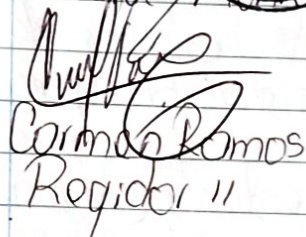 Cormán Ramos
Regidor 11